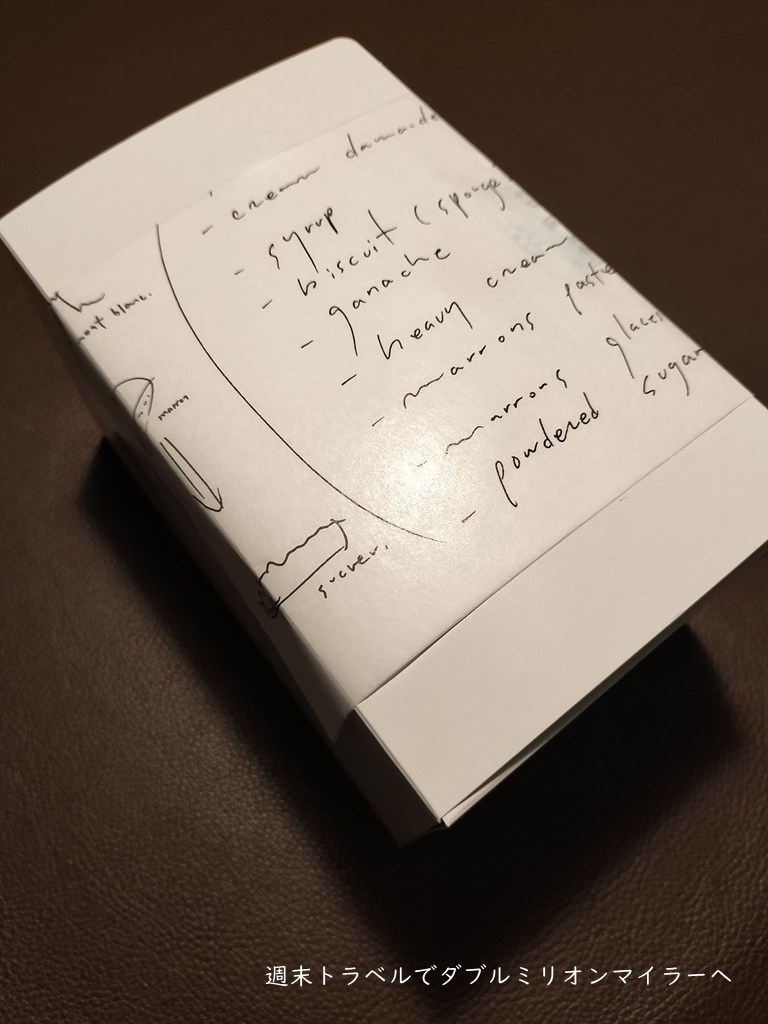 - cream
- syrup
- biscuit (sponge
- ganache
- heavy cream
- marrons paste
- marrons glaces
- powdered sugar
mont blanc.
marron
sucrer.
週末トラベルでダブルミリオンマイラーへ